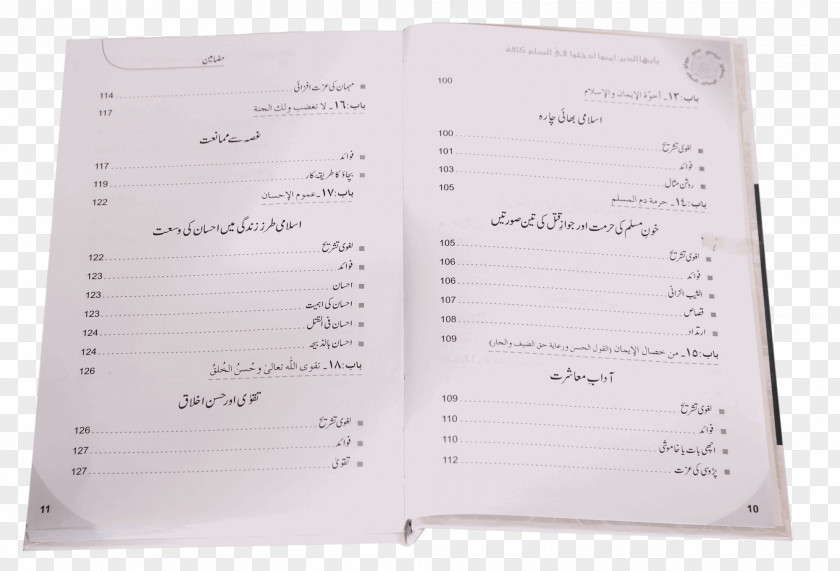 يايها الذين امنوا ادخلوا في السلم كافة
باب:١٣۔ أخوّة الإيمان والإسلام 100
اسلامی بھائی چارہ
لغوی تشریح 100
فوائد 101
روشن مثال 103
باب:١٤۔ حرمة دم المسلم 105
خونِ مسلم کی حرمت اور جوازِ قتل کی تین صورتیں
لغوی تشریح 105
فوائد 106
الثیب الزانی 106
قصاص 107
ارتداد 108
باب:١٥۔ من خصال الإيمان (القول الحسن ورعاية حق الضيف والجار) 109
آداب معاشرت
لغوی تشریح 109
فوائد 110
اچھی بات یا خاموشی 110
پڑوسی کی عزت 112
10
مضامین
مہمان کی عزت افزائی 114
باب:١٦۔ لا تغضب ولك الجنة 117
غصہ سے ممانعت
فوائد 117
بچاؤ کا طریقہ کار 119
باب:١٧۔ عموم الإحسان 122
اسلامی طرز زندگی میں احسان کی وسعت
لغوی تشریح 122
فوائد 123
احسان 123
احسان کی اہمیت 123
احسان فی القتل 124
احسان بالذبیحہ 124
باب:١٨۔ تقوى الله تعالىٰ وحُسنُ الخُلقُ 126
تقوٰی اور حسن اخلاق
لغوی تشریح 126
فوائد 127
تقویٰ 127
11